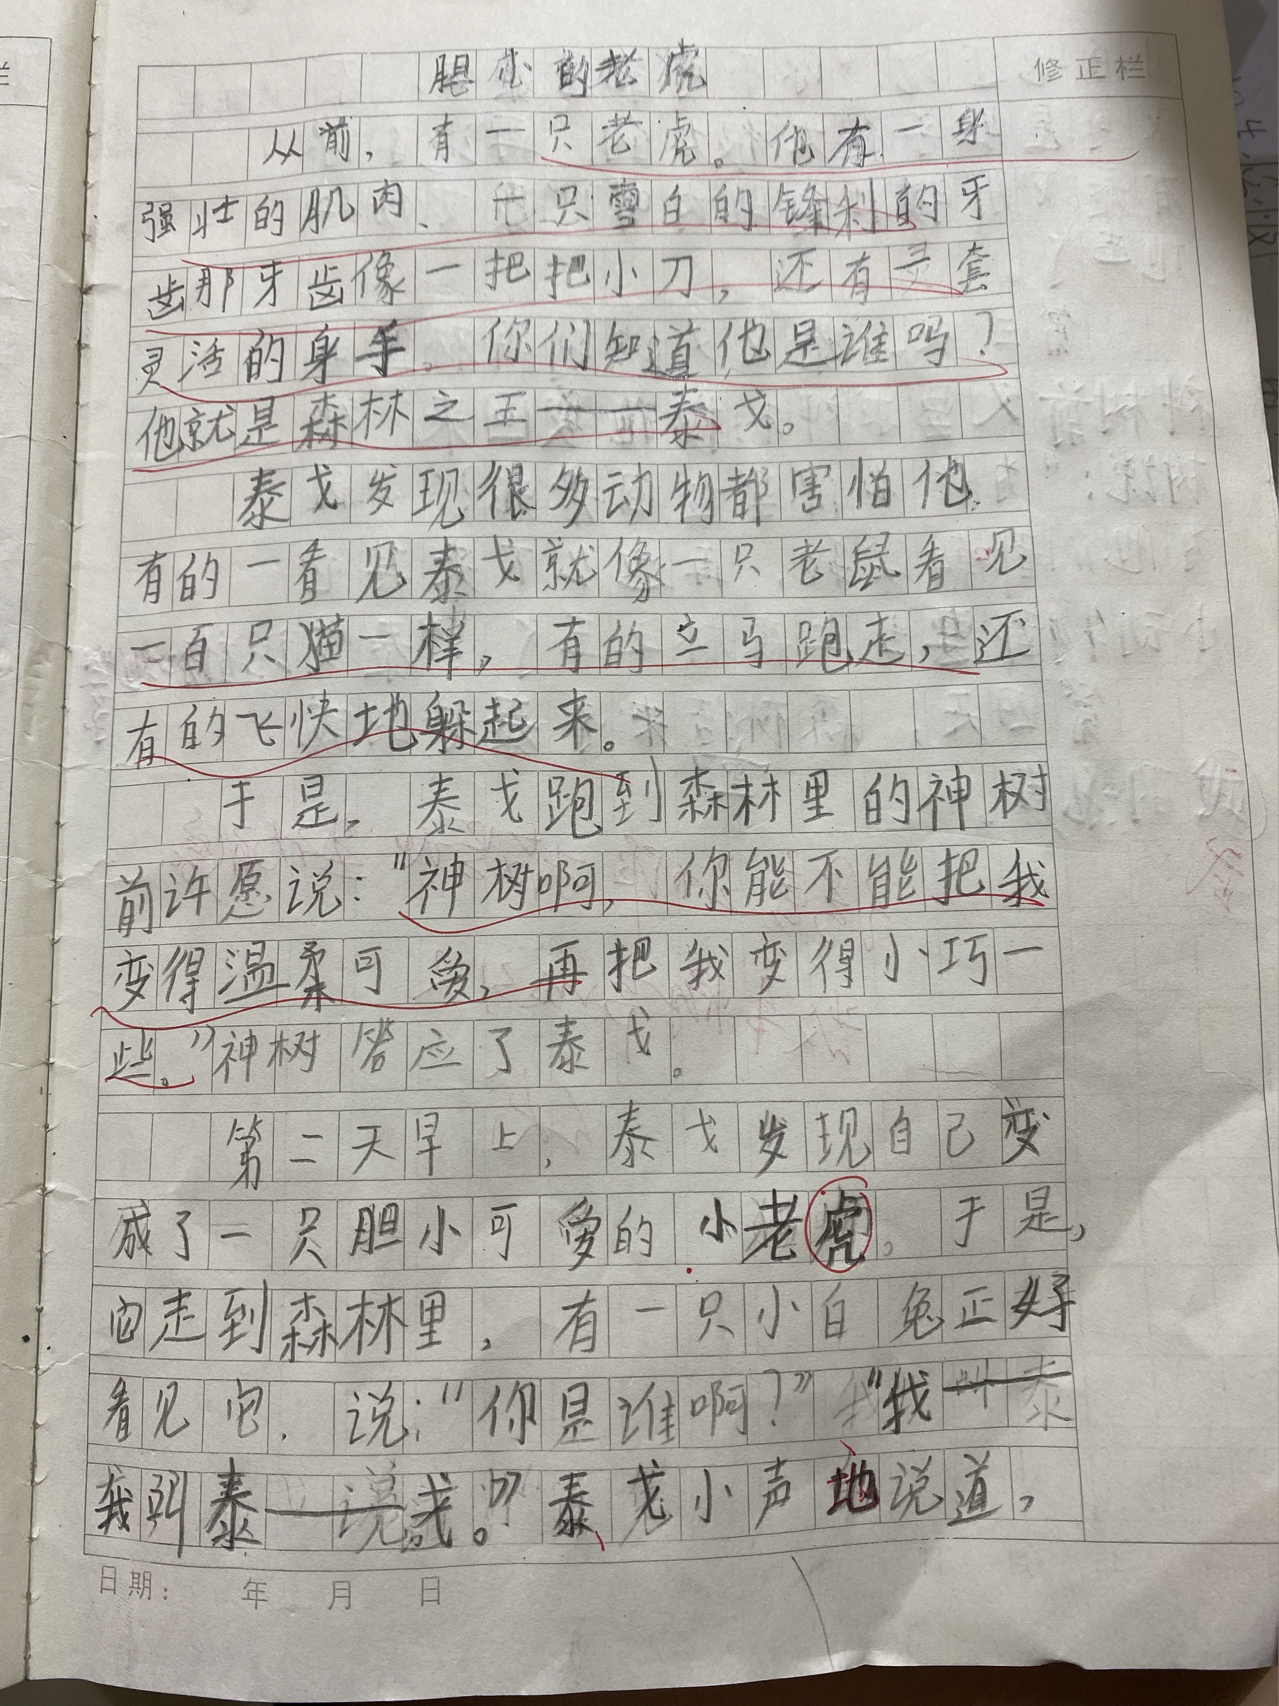 胆小的老虎
修正栏
从前，有一只老虎。他有一身
强壮的肌肉、七只雪白的锋利的牙
齿那牙齿像一把把小刀，还有一套
灵活的身手。你们知道他是谁吗？
他就是森林之王——泰戈。
泰戈发现很多动物都害怕他.
有的一看见泰戈就像一只老鼠看见
一百只猫一样，有的立马跑走，还
有的飞快地躲起来。
于是，泰戈跑到森林里的神树
前许愿说：“神树啊，你能不能把我
变得温柔可爱，再把我变得小巧一
些。”神树答应了泰戈。
第二天早上，泰戈发现自己变
成了一只胆小可爱的小老虎。于是，
它走到森林里，有一只小白兔正好
看见它.说：“你是谁啊？”“我叫泰
我叫泰——戈。”泰戈小声地说道，
日期： 年 月 日